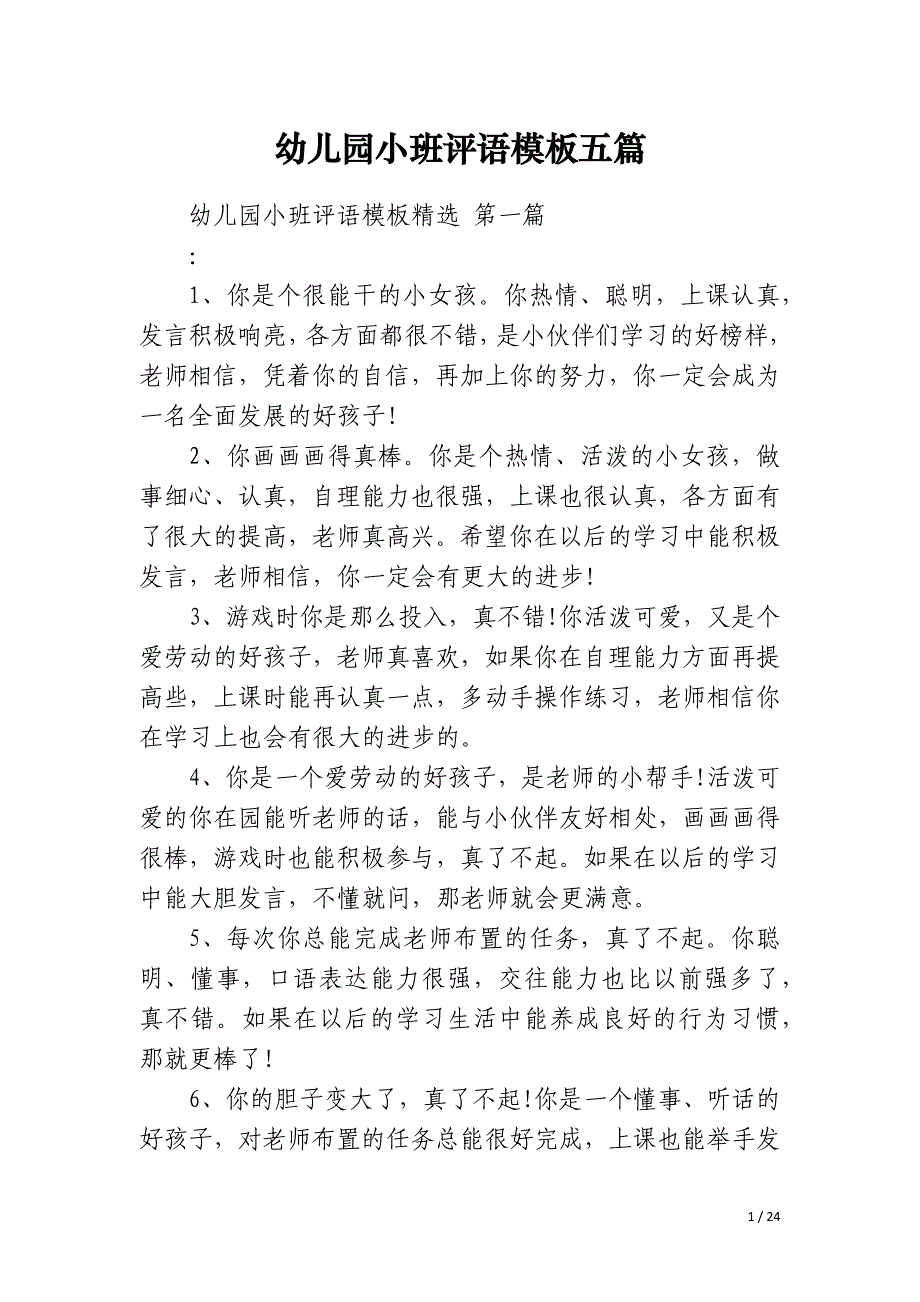 幼儿园小班评语模板五篇
幼儿园小班评语模板精选 第一篇
:
1、你是个很能干的小女孩。你热情、聪明，上课认真，
发言积极响亮，各方面都很不错，是小伙伴们学习的好榜样，
老师相信，凭着你的自信，再加上你的努力，你一定会成为
一名全面发展的好孩子!
2、你画画画得真棒。你是个热情、活泼的小女孩，做
事细心、认真，自理能力也很强，上课也很认真，各方面有
了很大的提高，老师真高兴。希望你在以后的学习中能积极
发言，老师相信，你一定会有更大的进步!
3、游戏时你是那么投入，真不错!你活泼可爱，又是个
爱劳动的好孩子，老师真喜欢，如果你在自理能力方面再提
高些，上课时能再认真一点，多动手操作练习，老师相信你
在学习上也会有很大的进步的。
4、你是一个爱劳动的好孩子，是老师的小帮手!活泼可
爱的你在园能听老师的话，能与小伙伴友好相处，画画画得
很棒，游戏时也能积极参与，真了不起。如果在以后的学习
中能大胆发言，不懂就问，那老师就会更满意。
5、每次你总能完成老师布置的任务，真了不起。你聪
明、懂事，口语表达能力很强，交往能力也比以前强多了，
真不错。如果在以后的学习生活中能养成良好的行为习惯，
那就更棒了!
6、你的胆子变大了，真了不起!你是一个懂事、听话的
好孩子，对老师布置的任务总能很好完成，上课也能举手发
1 / 24